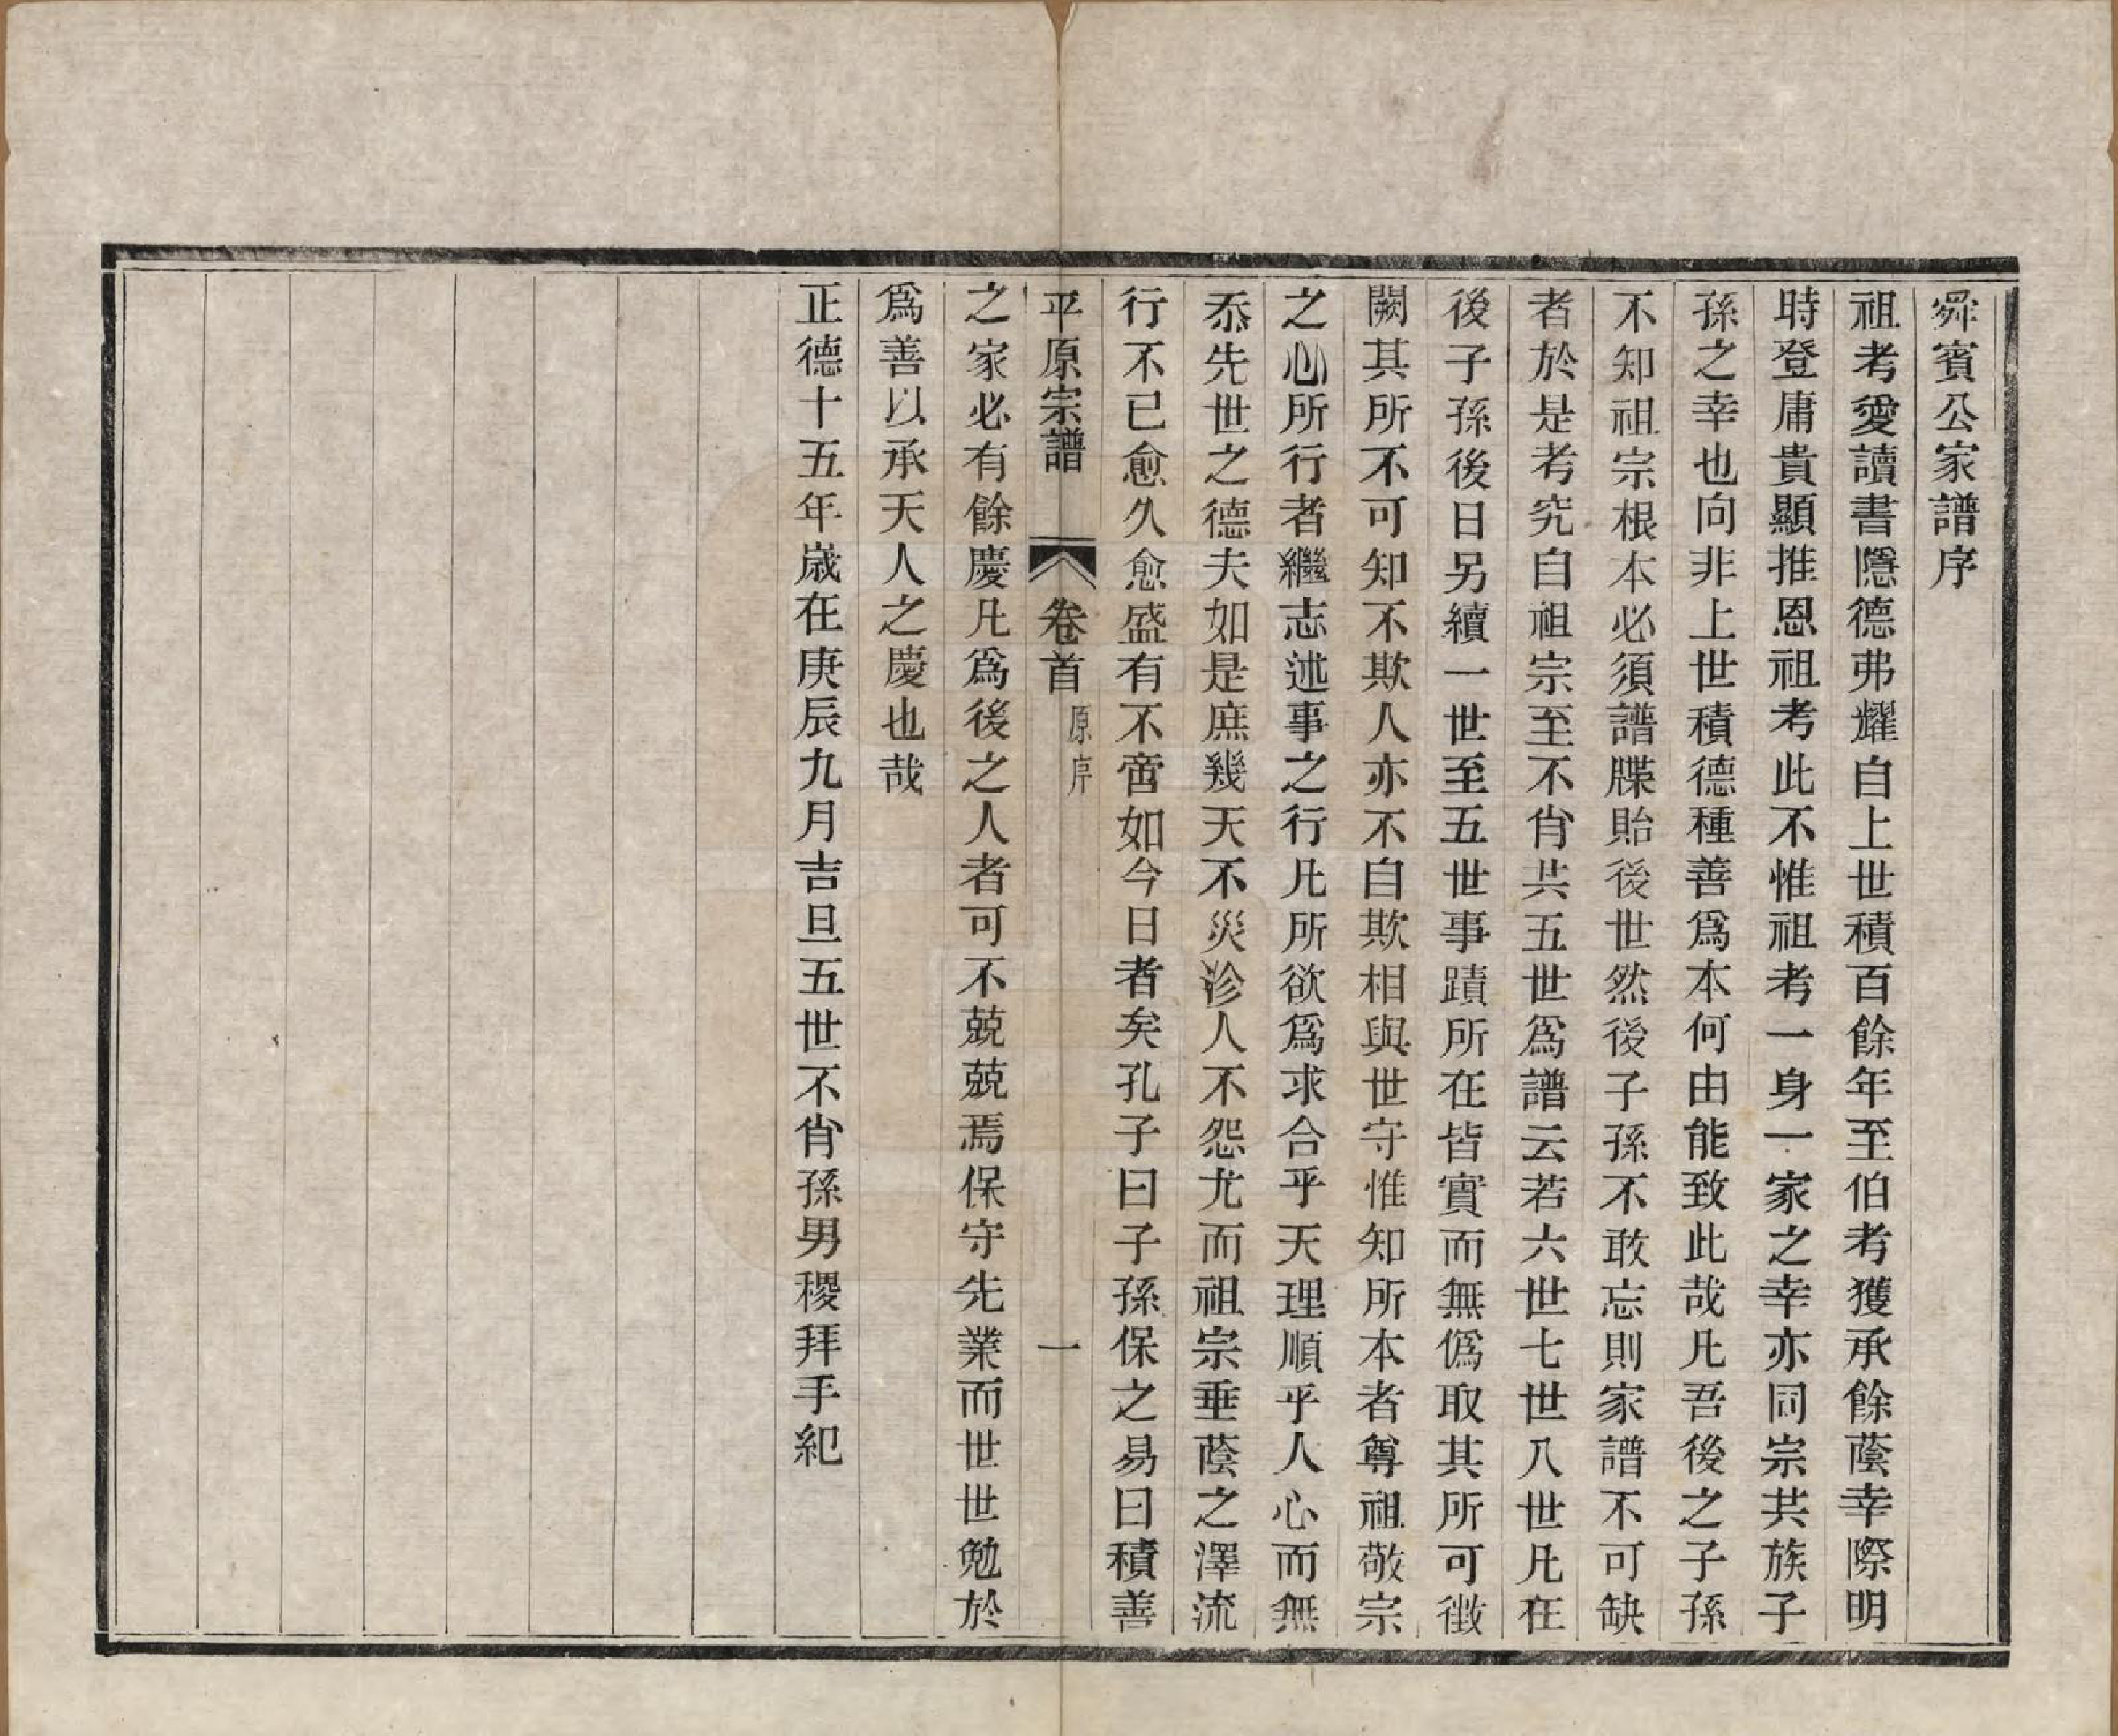 舜賓公家譜序
祖考愛讀書隱德弗耀自上世積百餘年至伯考獲承餘蔭幸際明
時登庸貴顯推恩祖考此不惟祖考一身一家之幸亦同宗共族子
孫之幸也向非上世積德種善爲本何由能致此哉凡吾後之子孫
不知祖宗根本必須譜牒貽後世然後子孫不敢忘則家譜不可缺
者於是考究自祖宗至不肖共五世爲譜云若六世七世八世凡在
後子孫後日另續一世至五世事蹟所在皆實而無僞取其所可徵
闕其所不可知不欺人亦不自欺相與世守惟知所本者尊祖敬宗
之心所行者繼志述事之行凡所欲爲求合乎天理順乎人心而無
忝先世之德夫如是庶幾天不災沴人不怨尤而祖宗垂蔭之澤流
行不已愈久愈盛有不啻如今日者矣孔子曰子孫保之易曰積善
平原宗譜 卷首 原序 一
之家必有餘慶凡爲後之人者可不兢兢焉保守先業而世世勉於
爲善以承天人之慶也哉
正德十五年歲在庚辰九月吉旦五世不肖孫男稷拜手紀